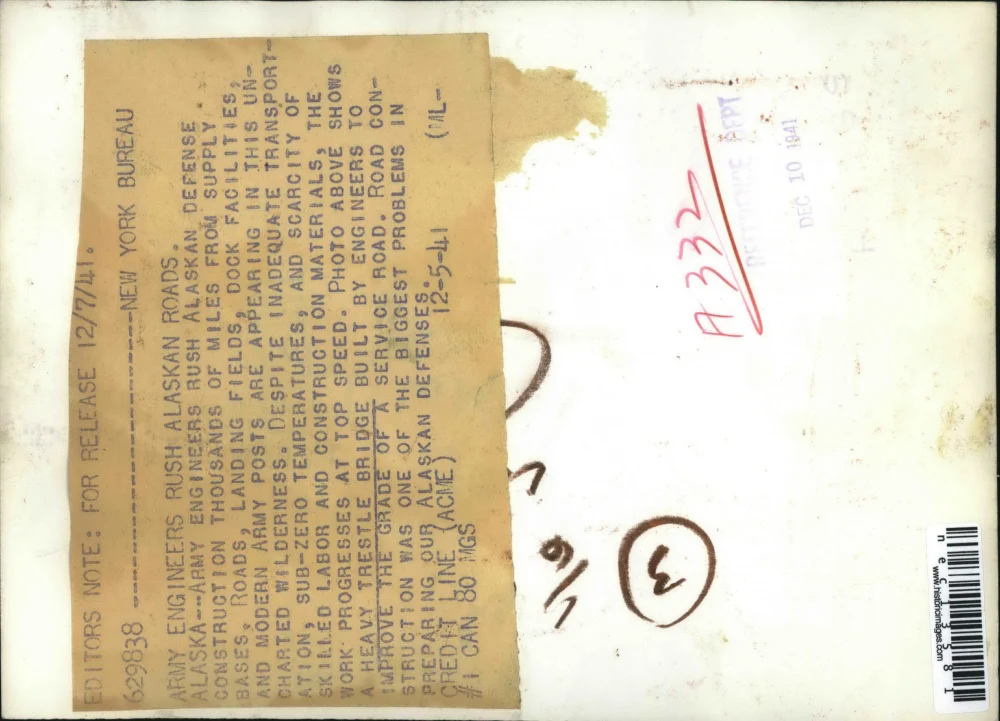 EDITORS NOTE: FOR RELEASE 12/7/41.
629838 --------------------------NEW YORK BUREAU
ARMY ENGINEERS RUSH ALASKAN ROADS.
ALASKA--ARMY ENGINEERS RUSH ALASKAN DEFENSE
CONSTRUCTION THOUSANDS OF MILES FROM SUPPLY
BASES. ROADS, LANDING FIELDS, DOCK FACILITIES,
AND MODERN ARMY POSTS ARE APPEARING IN THIS UN-
CHARTED WILDERNESS. DESPITE INADEQUATE TRANSPORT-
ATION, SUB-ZERO TEMPERATURES, AND SCARCITY OF
SKILLED LABOR AND CONSTRUCTION MATERIALS, THE
WORK PROGRESSES AT TOP SPEED. PHOTO ABOVE SHOWS
A HEAVY TRESTLE BRIDGE BUILT BY ENGINEERS TO
IMPROVE THE GRADE OF A SERVICE ROAD. ROAD CON-
STRUCTION WAS ONE OF THE BIGGEST PROBLEMS IN
PREPARING OUR ALASKAN DEFENSES.
CREDIT LINE (ACME) 12-5-41 (ML-
#1 CAN 80 MGS
A 332
REFERENCE DEPT
DEC 10 1941
3
www.historicimages.com
nec13581